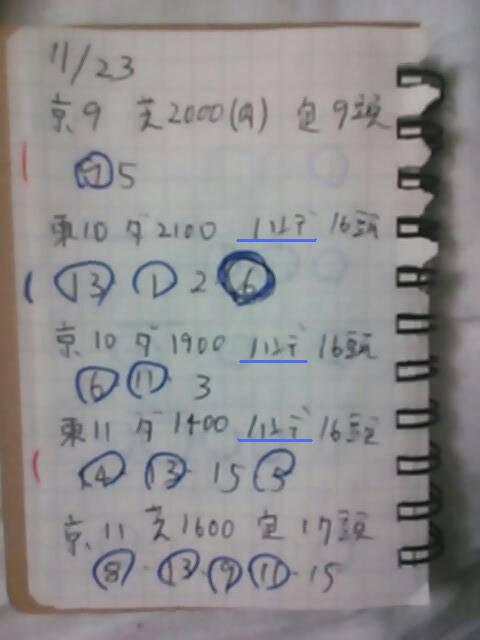 11/23
京9 芝2000(内) 定 9頭
⑦ 5
東10 ダ2100 ハンデ 16頭
⑬ ① 2 ⑥
京10 ダ1900 ハンデ 16頭
⑥ ⑪ 3
東11 ダ1400 ハンデ 16頭
④ ⑬ 15 ③
京11 芝1600 定 17頭
⑧ ⑬ ⑨ ⑪ 15